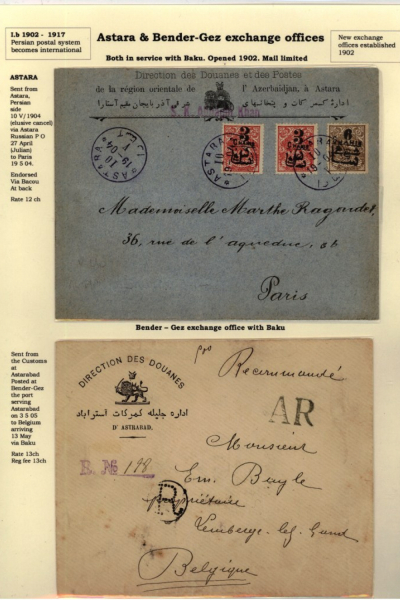 I.b 1902 - 1917
Persian postal system
becomes international
Astara & Bender-Gez exchange offices
Both in service with Baku. Opened 1902. Mail limited
New exchange
offices established
1902
ASTARA
Sent from
Astara,
Persian
side
10 V/1904
(elusive cancel)
via Astara
Russian P O
27 April
(Julian)
to Paris
19 5 04.
Endorsed
Via Bacou
At back
Rate 12 ch
Direction des Douanes et des Postes
de la région orientale de l'Azerbaidjan, à Astara
ASTARA
Mademoiselle Marthe Ragondet,
36, rue de l'aqueduc, 36
Paris
Bender – Gez exchange office with Baku
Sent from
the Customs
at
Astarabad
Posted at
Bender-Gez
the port
serving
Astarabad
on 3 5 05
to Belgium
arriving
13 May
via Baku
Rate 13ch
Reg fee 13ch
DIRECTION DES DOUANES
اداره جلیله گمرکات استراباد
D'ASTRABAD,
Recommandé
AR
R. No 198
R
Monsieur
Em. Buyle
propriétaire
Belgique